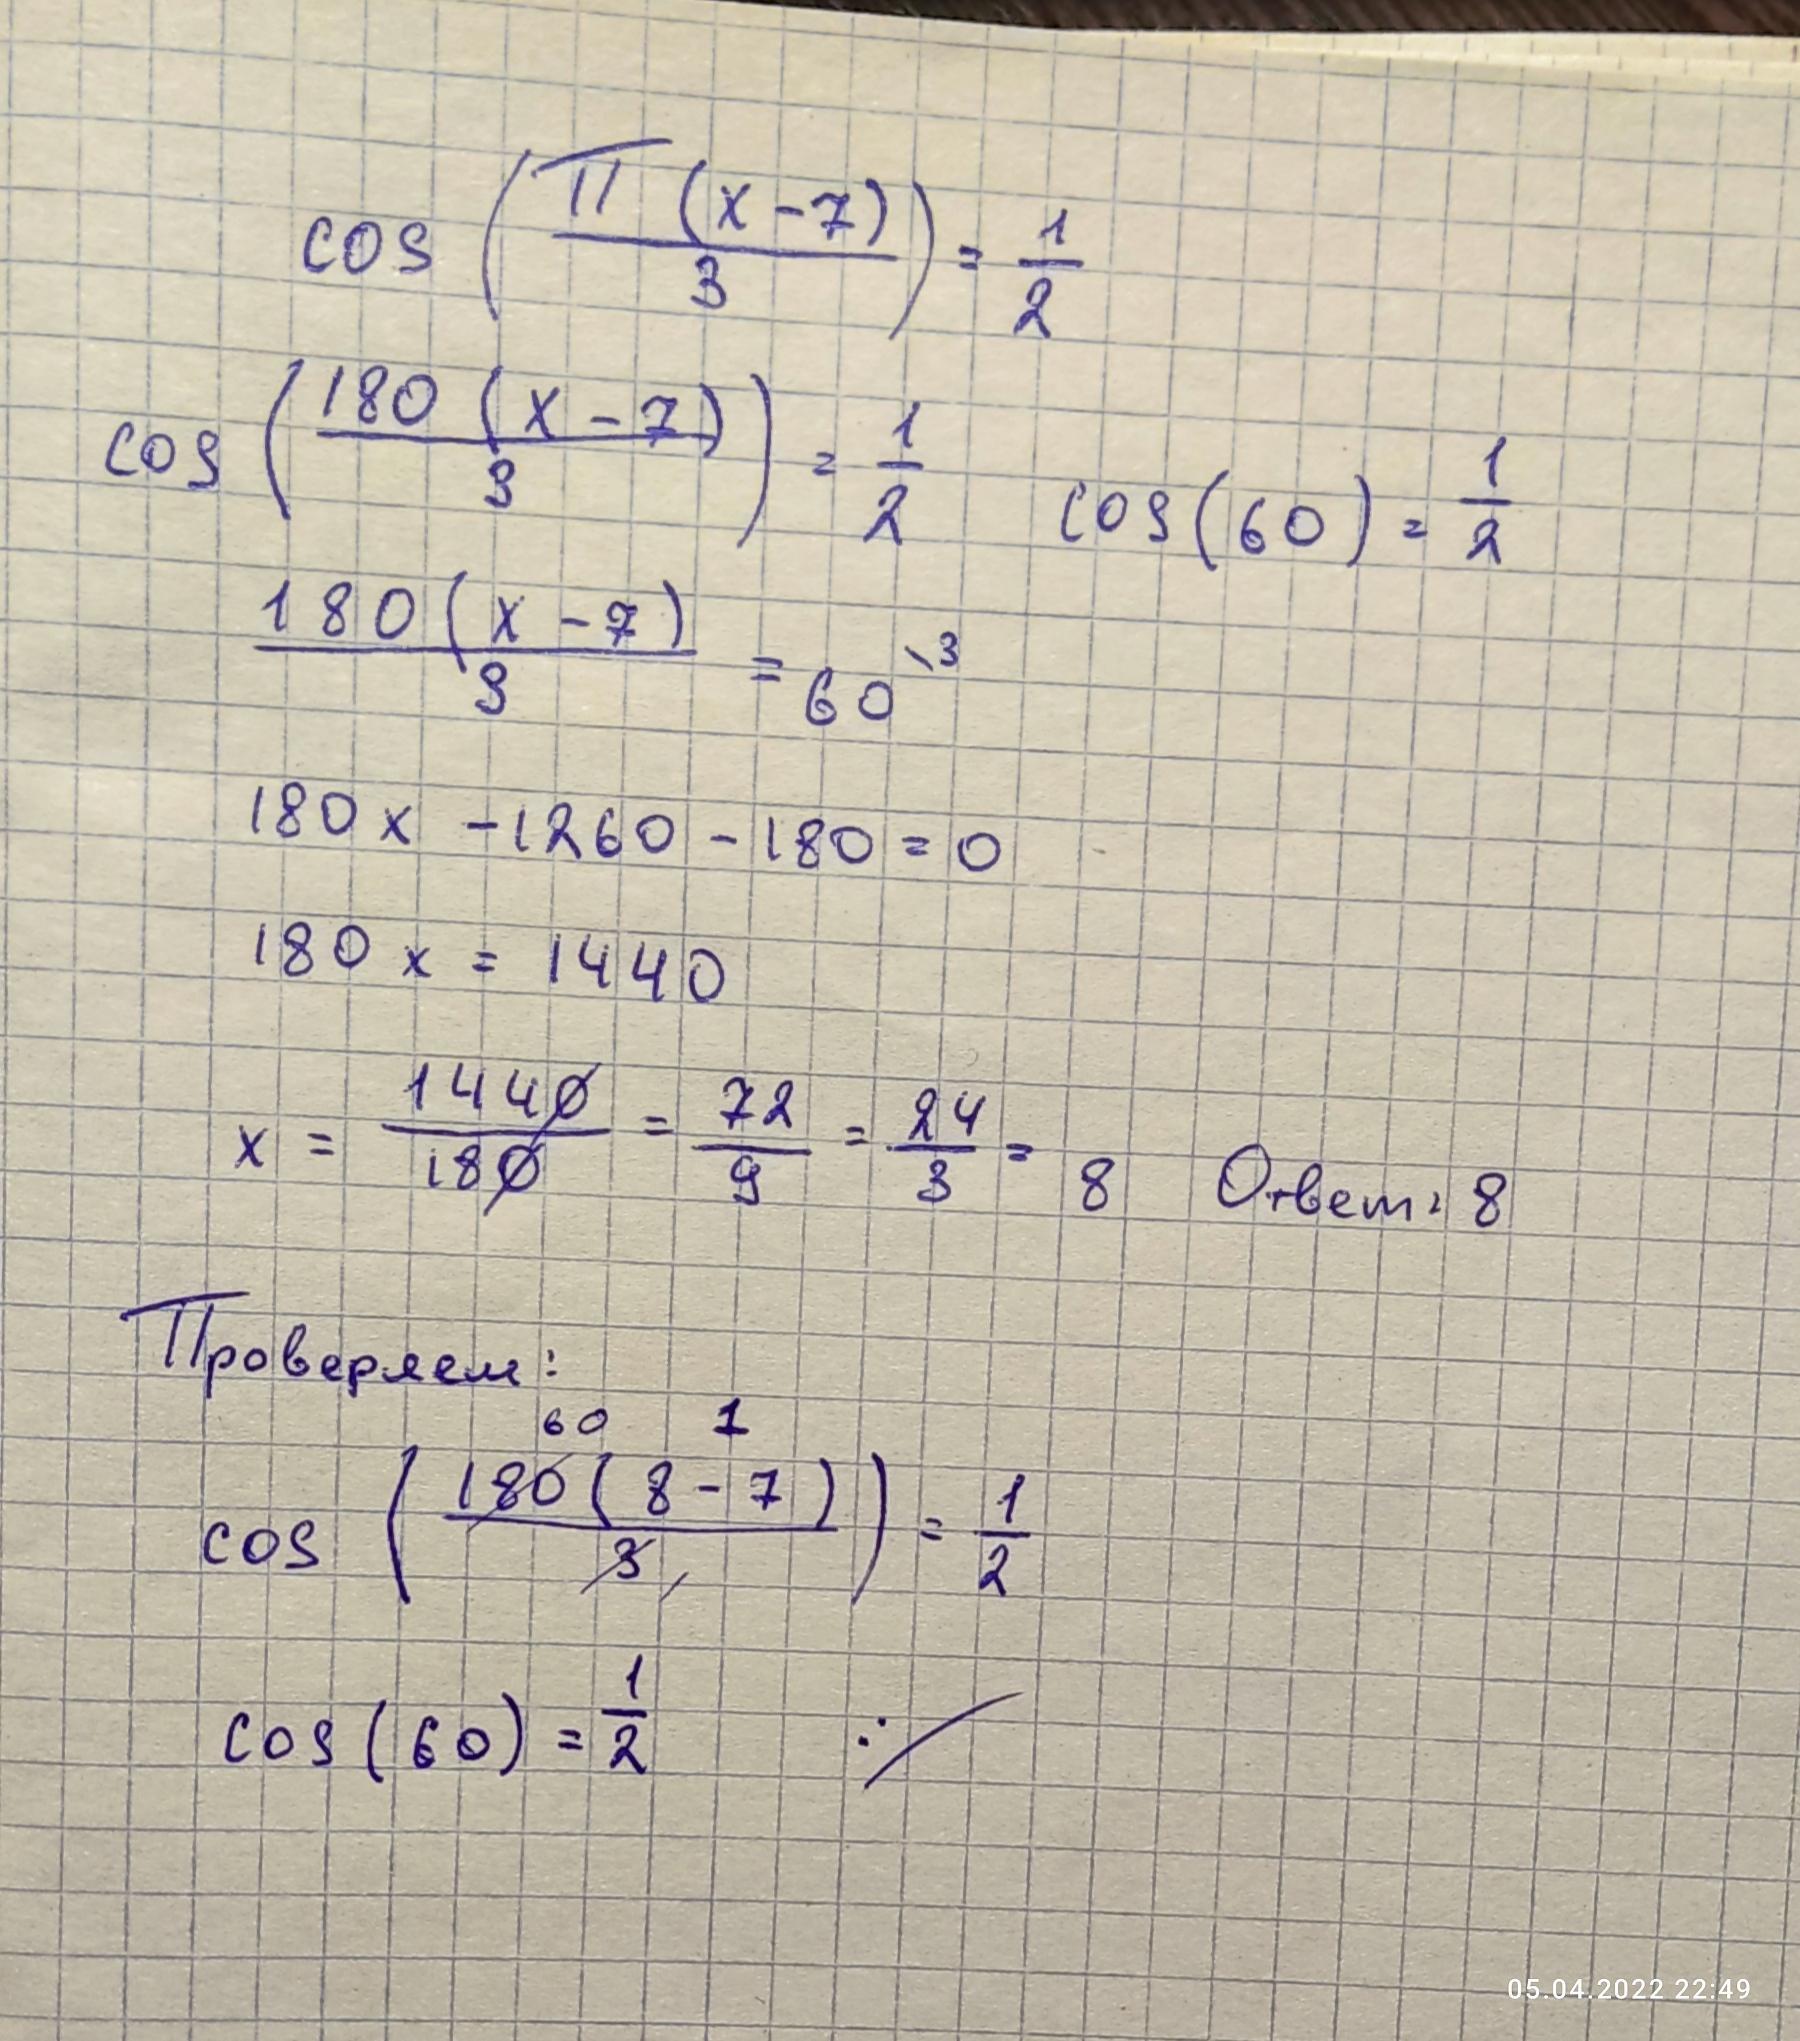 cos (π(x-7)/3) = 1/2
cos (180(x-7)/3) = 1/2 cos(60) = 1/2
180(x-7)/3 = 60 \3
180x - 1260 - 180 = 0
180x = 1440
x = 1440/180 = 72/9 = 24/3 = 8 Ответ: 8
Проверяем:
60 1
cos (180(8-7)/3) = 1/2
cos(60) = 1/2
05.04.2022 22:49